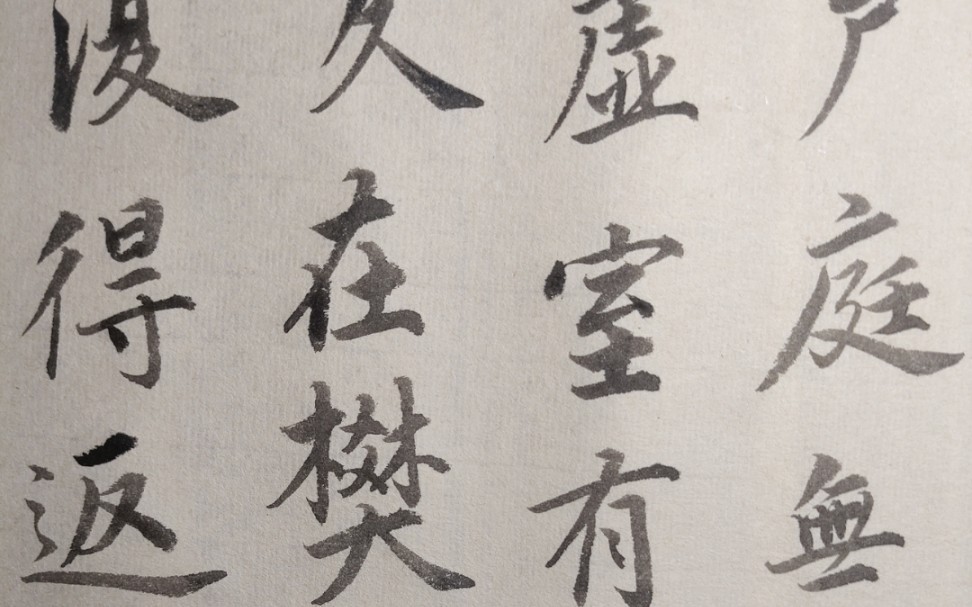 户庭無
虛室有
久在樊
復得返